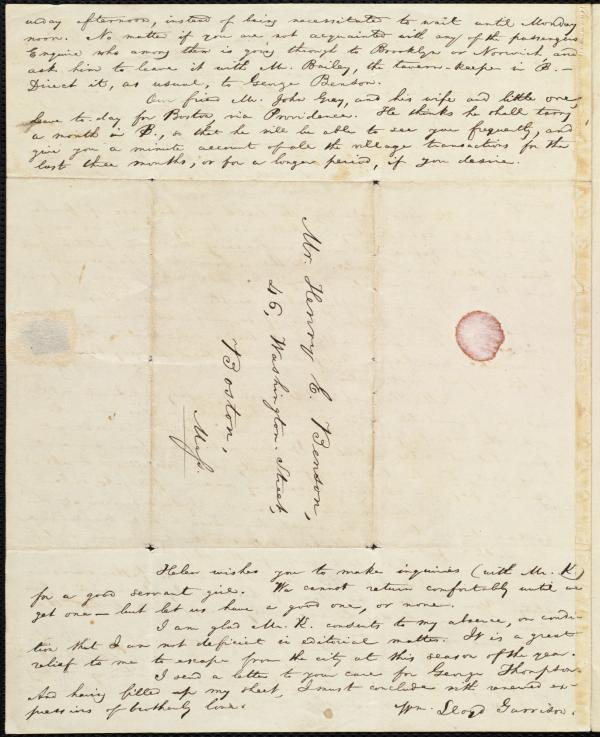 urday afternoon, instead of being necessitated to wait until Monday
noon. No matter if you are not acquainted with any of the passengers
Enquire who among them is going through to Brooklyn or Norwich, and
ask him to leave it with Mr. Bailey, the tavern-keeper in B.—
Direct it, as usual, to George Benson.
Our friend Mr. John Gray, and his wife and little one,
leave to-day for Boston, via Providence. He thinks he shall tarry
a month in B., so that he will be able to see you frequently, and
give you a minute account of all the village transactions for the
last three months, or for a longer period, if you desire.
Mr. Henry E. Benson,
46, Washington-Street,
Boston,
Mass.
Helen wishes you to make inquiries (with Mr. K.)
for a good servant girl. We cannot return comfortably until we
get one — but let us have a good one, or none.
I am glad Mr. K. consents to my absence, on condi-
tion that I am not deficient in editorial matter. It is a great
relief to me to escape from the city at this season of the year.
I send a letter to your care for George Thompson.
And having filled up my sheet, I must conclude with renewed ex-
pressions of brotherly love.
Wm. Lloyd Garrison.